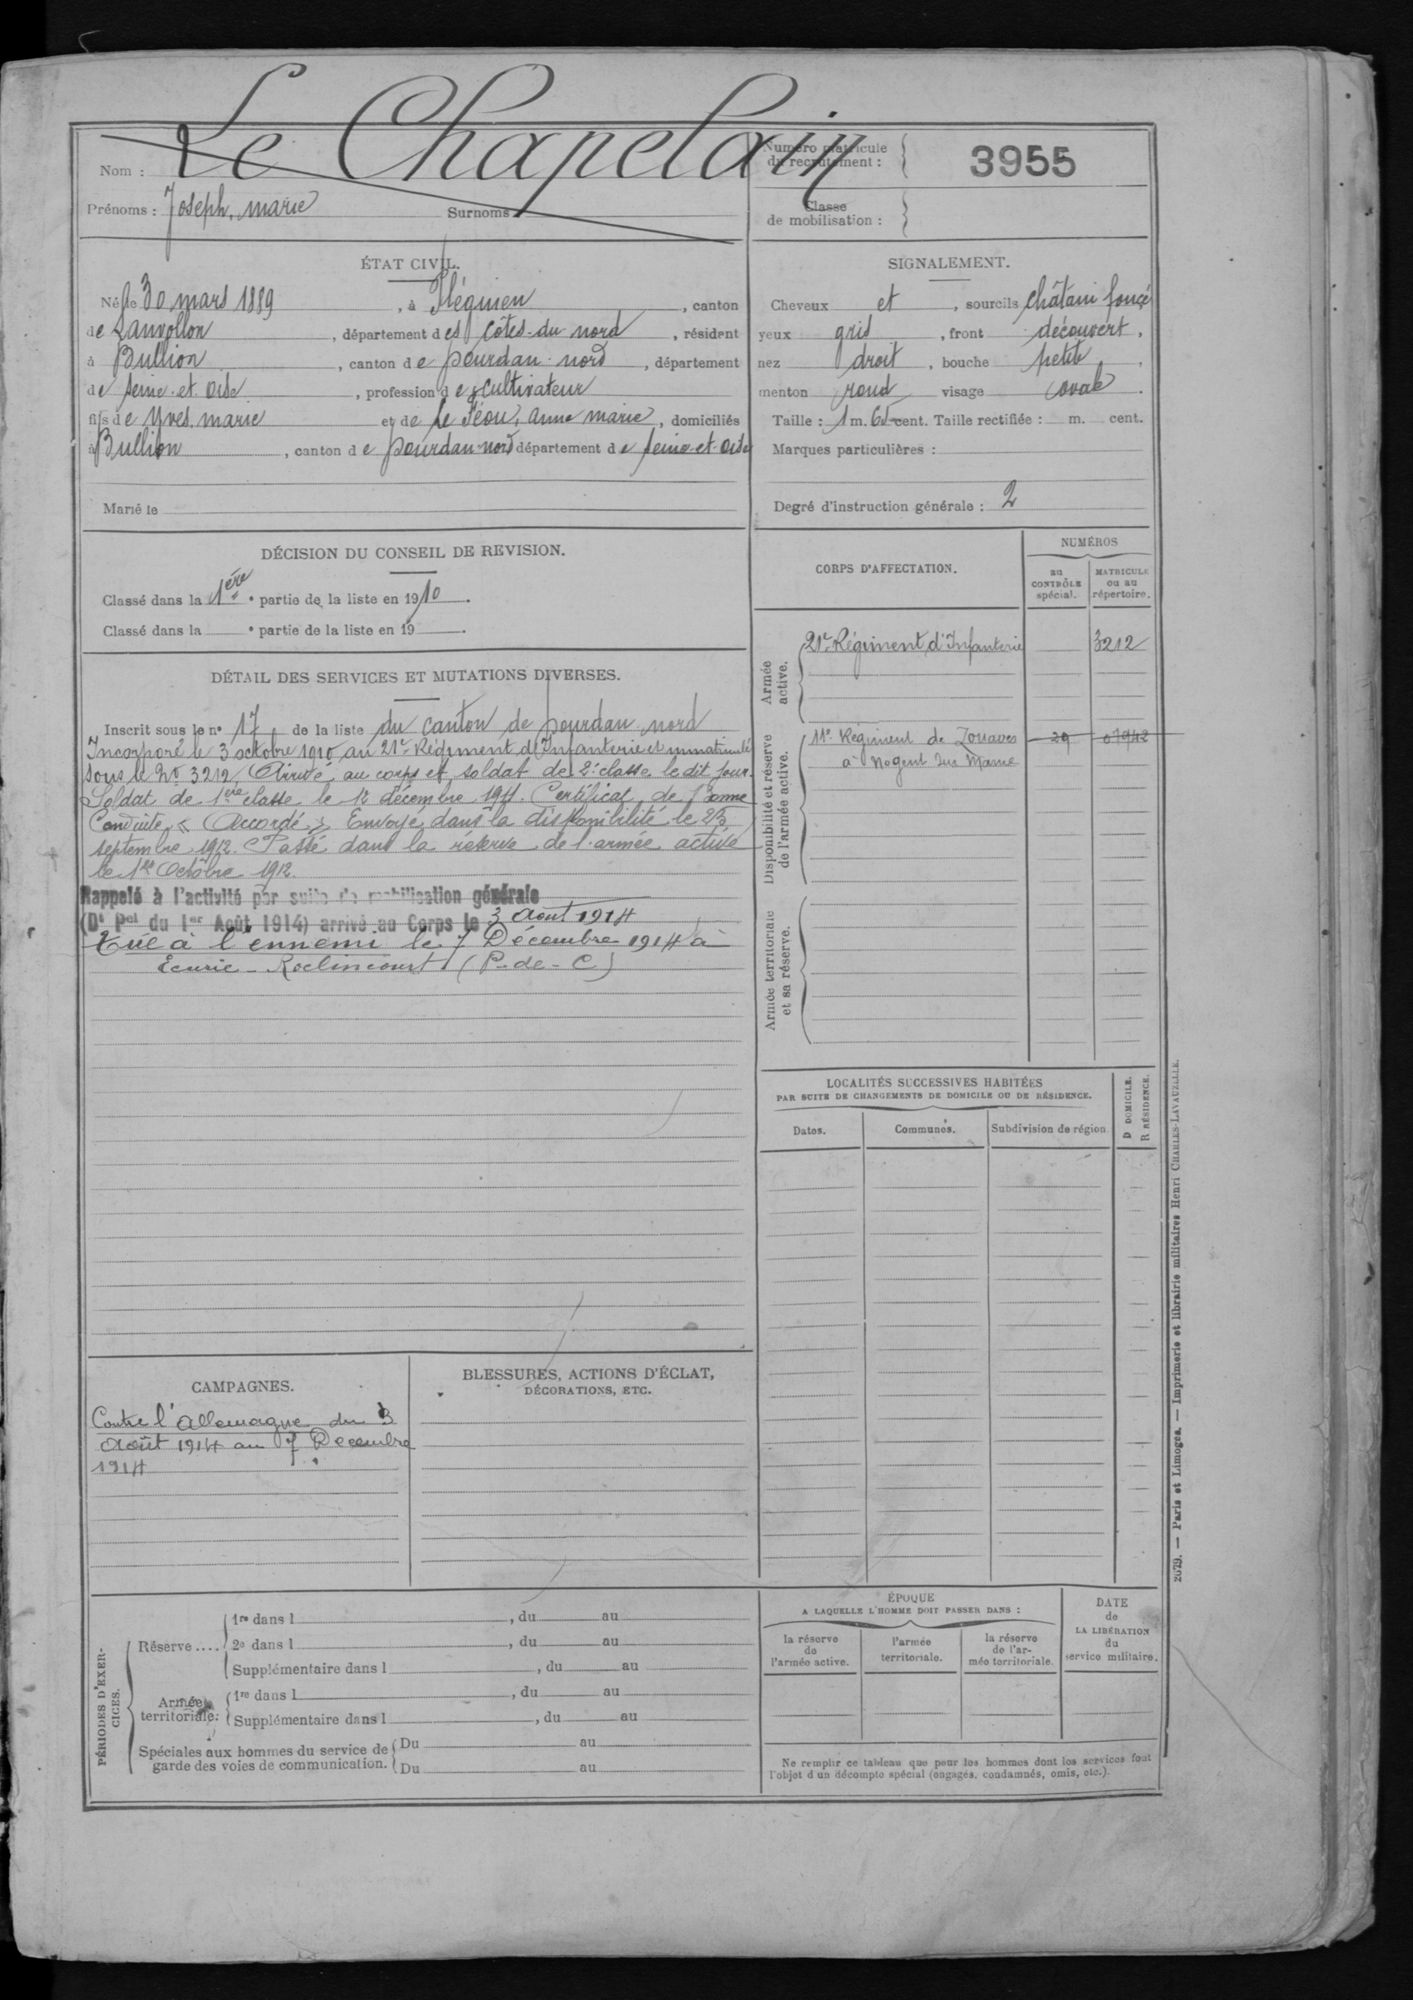 Nom : Le Chapelain
Prénoms : Joseph, marie Surnoms
Numéro matricule
du recrutement : 3955
Classe
de mobilisation :
ÉTAT CIVIL.
Né le 30 mars 1889, à Pléguien, canton
de Lanvollon, département des Côtes-du-nord, résident
à Bullion, canton de Dourdan-nord, département
de Seine-et-Oise, profession de cultivateur
fils de Yves, marie et de Le Péou, anne marie, domiciliés
à Bullion, canton de Dourdan-nord département de Seine-et-Oise
Marié le
SIGNALEMENT.
Cheveux et, sourcils châtain foncé
yeux gris, front découvert,
nez droit, bouche petite,
menton rond visage ovale
Taille : 1 m. 65 cent. Taille rectifiée : m. cent.
Marques particulières :
Degré d'instruction générale : 2
DÉCISION DU CONSEIL DE REVISION.
Classé dans la 1ère partie de la liste en 1910.
Classé dans la e partie de la liste en 19 .
DÉTAIL DES SERVICES ET MUTATIONS DIVERSES.
Inscrit sous le n° 17 de la liste du canton de Dourdan nord
Incorporé le 3 octobre 1910 au 21e Régiment d'Infanterie et immatriculé
sous le No 3212, Arrivé au corps et soldat de 2e classe le dit jour.
Soldat de 1ère classe le 1er décembre 1911. Certificat de Bonne
Conduite « Accordé » Envoyé dans la disponibilité le 25
septembre 1912. Passé dans la réserve de l'armée active
le 1er Octobre 1912.
Rappelé à l'activité par suite de mobilisation générale
(Dt Pel du 1er Août 1914) arrivé au Corps le 3 Août 1914
Tué à l'ennemi le 7 Décembre 1914 à
Ecurie - Roclincourt (P-de-C)
CORPS D'AFFECTATION.
NUMÉROS
au
CONTRÔLE
spécial.
MATRICULE
ou au
répertoire.
Armée
active.
21e Régiment d'Infanterie 3212
Disponibilité et réserve
de l'armée active.
11e Régiment de Zouaves 29
à Nogent sur Marne
Armée territoriale
et sa réserve.
LOCALITÉS SUCCESSIVES HABITÉES
PAR SUITE DE CHANGEMENTS DE DOMICILE OU DE RÉSIDENCE.
Dates. Communes. Subdivision de région
D DOMICILE.
R RÉSIDENCE.
CAMPAGNES.
Contre l'Allemagne du 3
Août 1914 au 7 Décembre
1914
BLESSURES, ACTIONS D'ÉCLAT,
DÉCORATIONS, ETC.
PÉRIODES D'EXER-
CICES.
Réserve ....
1re dans l , du au
2e dans l , du au
Supplémentaire dans l , du au
Armée
territoriale:
1re dans l , du au
Supplémentaire dans l , du au
Spéciales aux hommes du service de
garde des voies de communication.
Du au
Du au
ÉPOQUE
A LAQUELLE L'HOMME DOIT PASSER DANS :
la réserve
de
l'armée active.
l'armée
territoriale.
la réserve
de l'ar-
mée territoriale.
DATE
de
LA LIBÉRATION
du
service militaire.
Ne remplir ce tableau que pour les hommes dont les services font
l'objet d'un décompte spécial (engagés, condamnés, omis, etc.).
2679. — Paris et Limoges. — Imprimerie et librairie militaires Henri CHARLES-LAVAUZELLE.